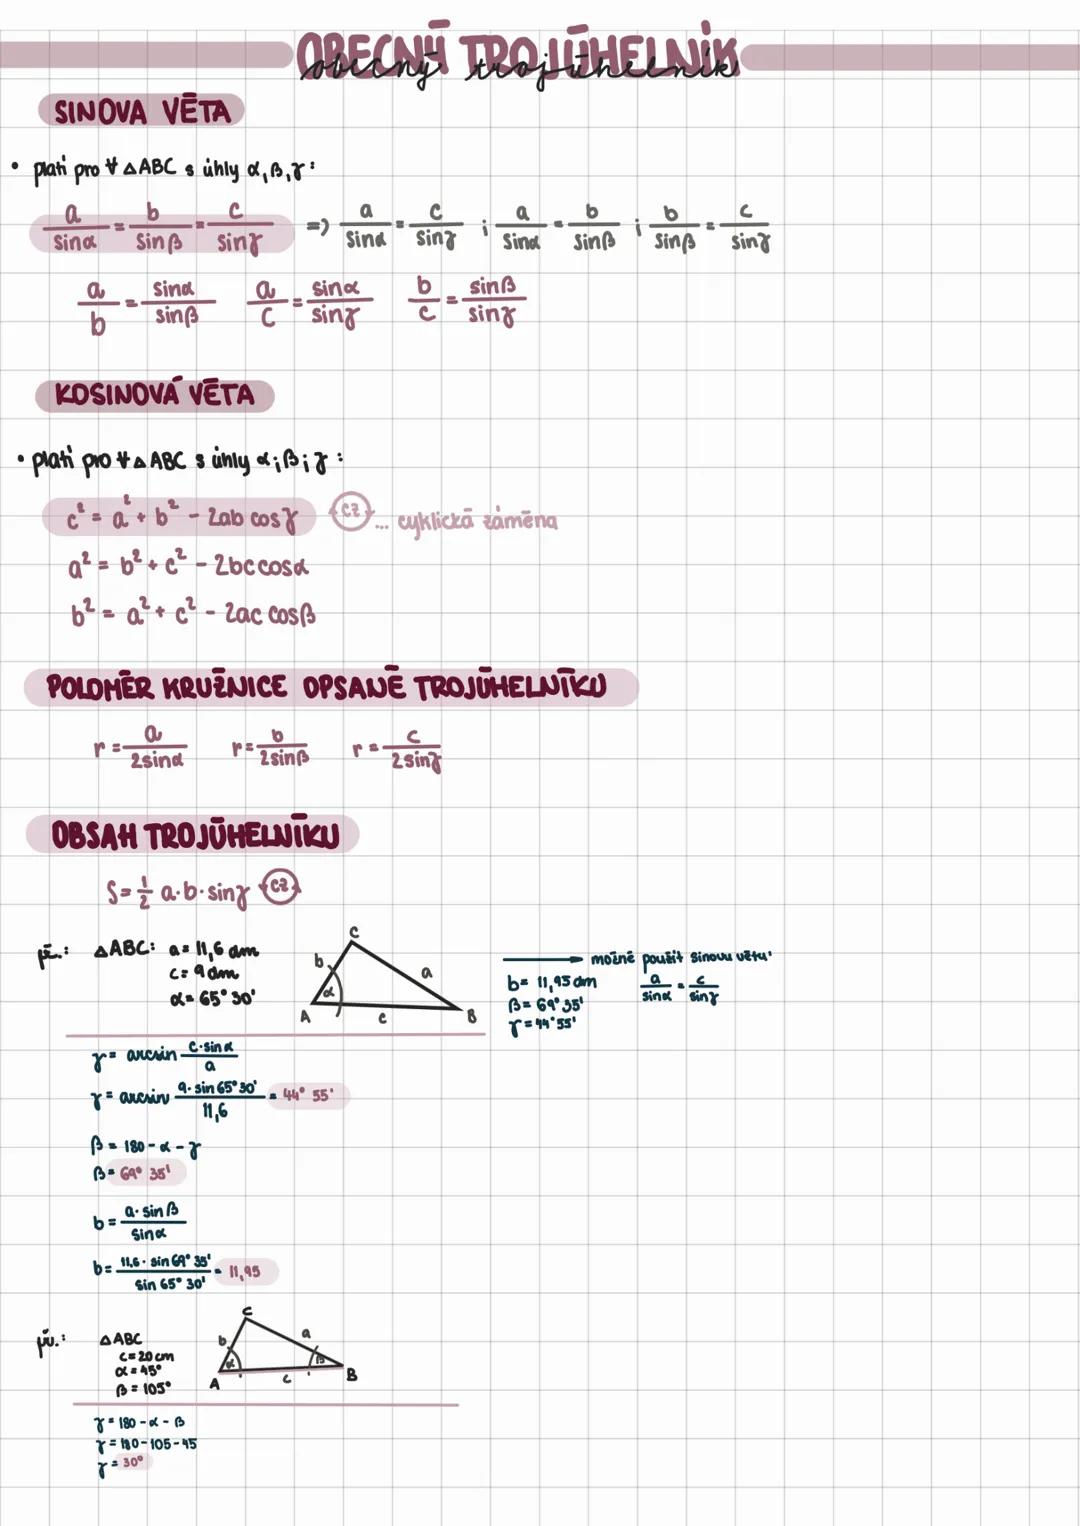 OBECNÝ TROJÚHELNÍK
obecný trojúhelník
SINOVA VĚTA
• platí pro ∀ △ABC s úhly α, β, γ:
a/sinα = b/sinβ = c/sinγ => a/sinα = c/sinγ ; a/sinα = b/sinβ ; b/sinβ = c/sinγ
a/b = sinα/sinβ a/c = sinα/sinγ b/c = sinβ/sinγ
KOSINOVÁ VĚTA
• platí pro ∀ △ABC s úhly α; β; γ:
c² = a² + b² - 2ab cosγ CZ ... cyklická záměna
a² = b² + c² - 2bc cosα
b² = a² + c² - 2ac cosβ
POLOMĚR KRUŽNICE OPSANÉ TROJÚHELNÍKU
r = a/2sinα r = b/2sinβ r = c/2sinγ
OBSAH TROJÚHELNÍKU
S = 1/2 a·b·sinγ CZ
př.: △ABC: a = 11,6 dm
c = 9 dm
α = 65° 30'
C
b
a
α
A
c
B
možné použít sinovu větu!
b = 11,95 dm a/sinα = c/sinγ
β = 69° 35'
γ = 44° 55'
γ = arcsin c·sinα/a
γ = arcsin 9·sin 65° 30'/11,6 = 44° 55'
β = 180 - α - γ
β = 69° 35'
b = a·sinβ/sinα
b = 11,6·sin 69° 35'/sin 65° 30' = 11,95
př.: △ABC
c = 20 cm
α = 45°
β = 105°
C
b
a
α
β
A
c
B
γ = 180 - α - β
γ = 180 - 105 - 45
γ = 30°